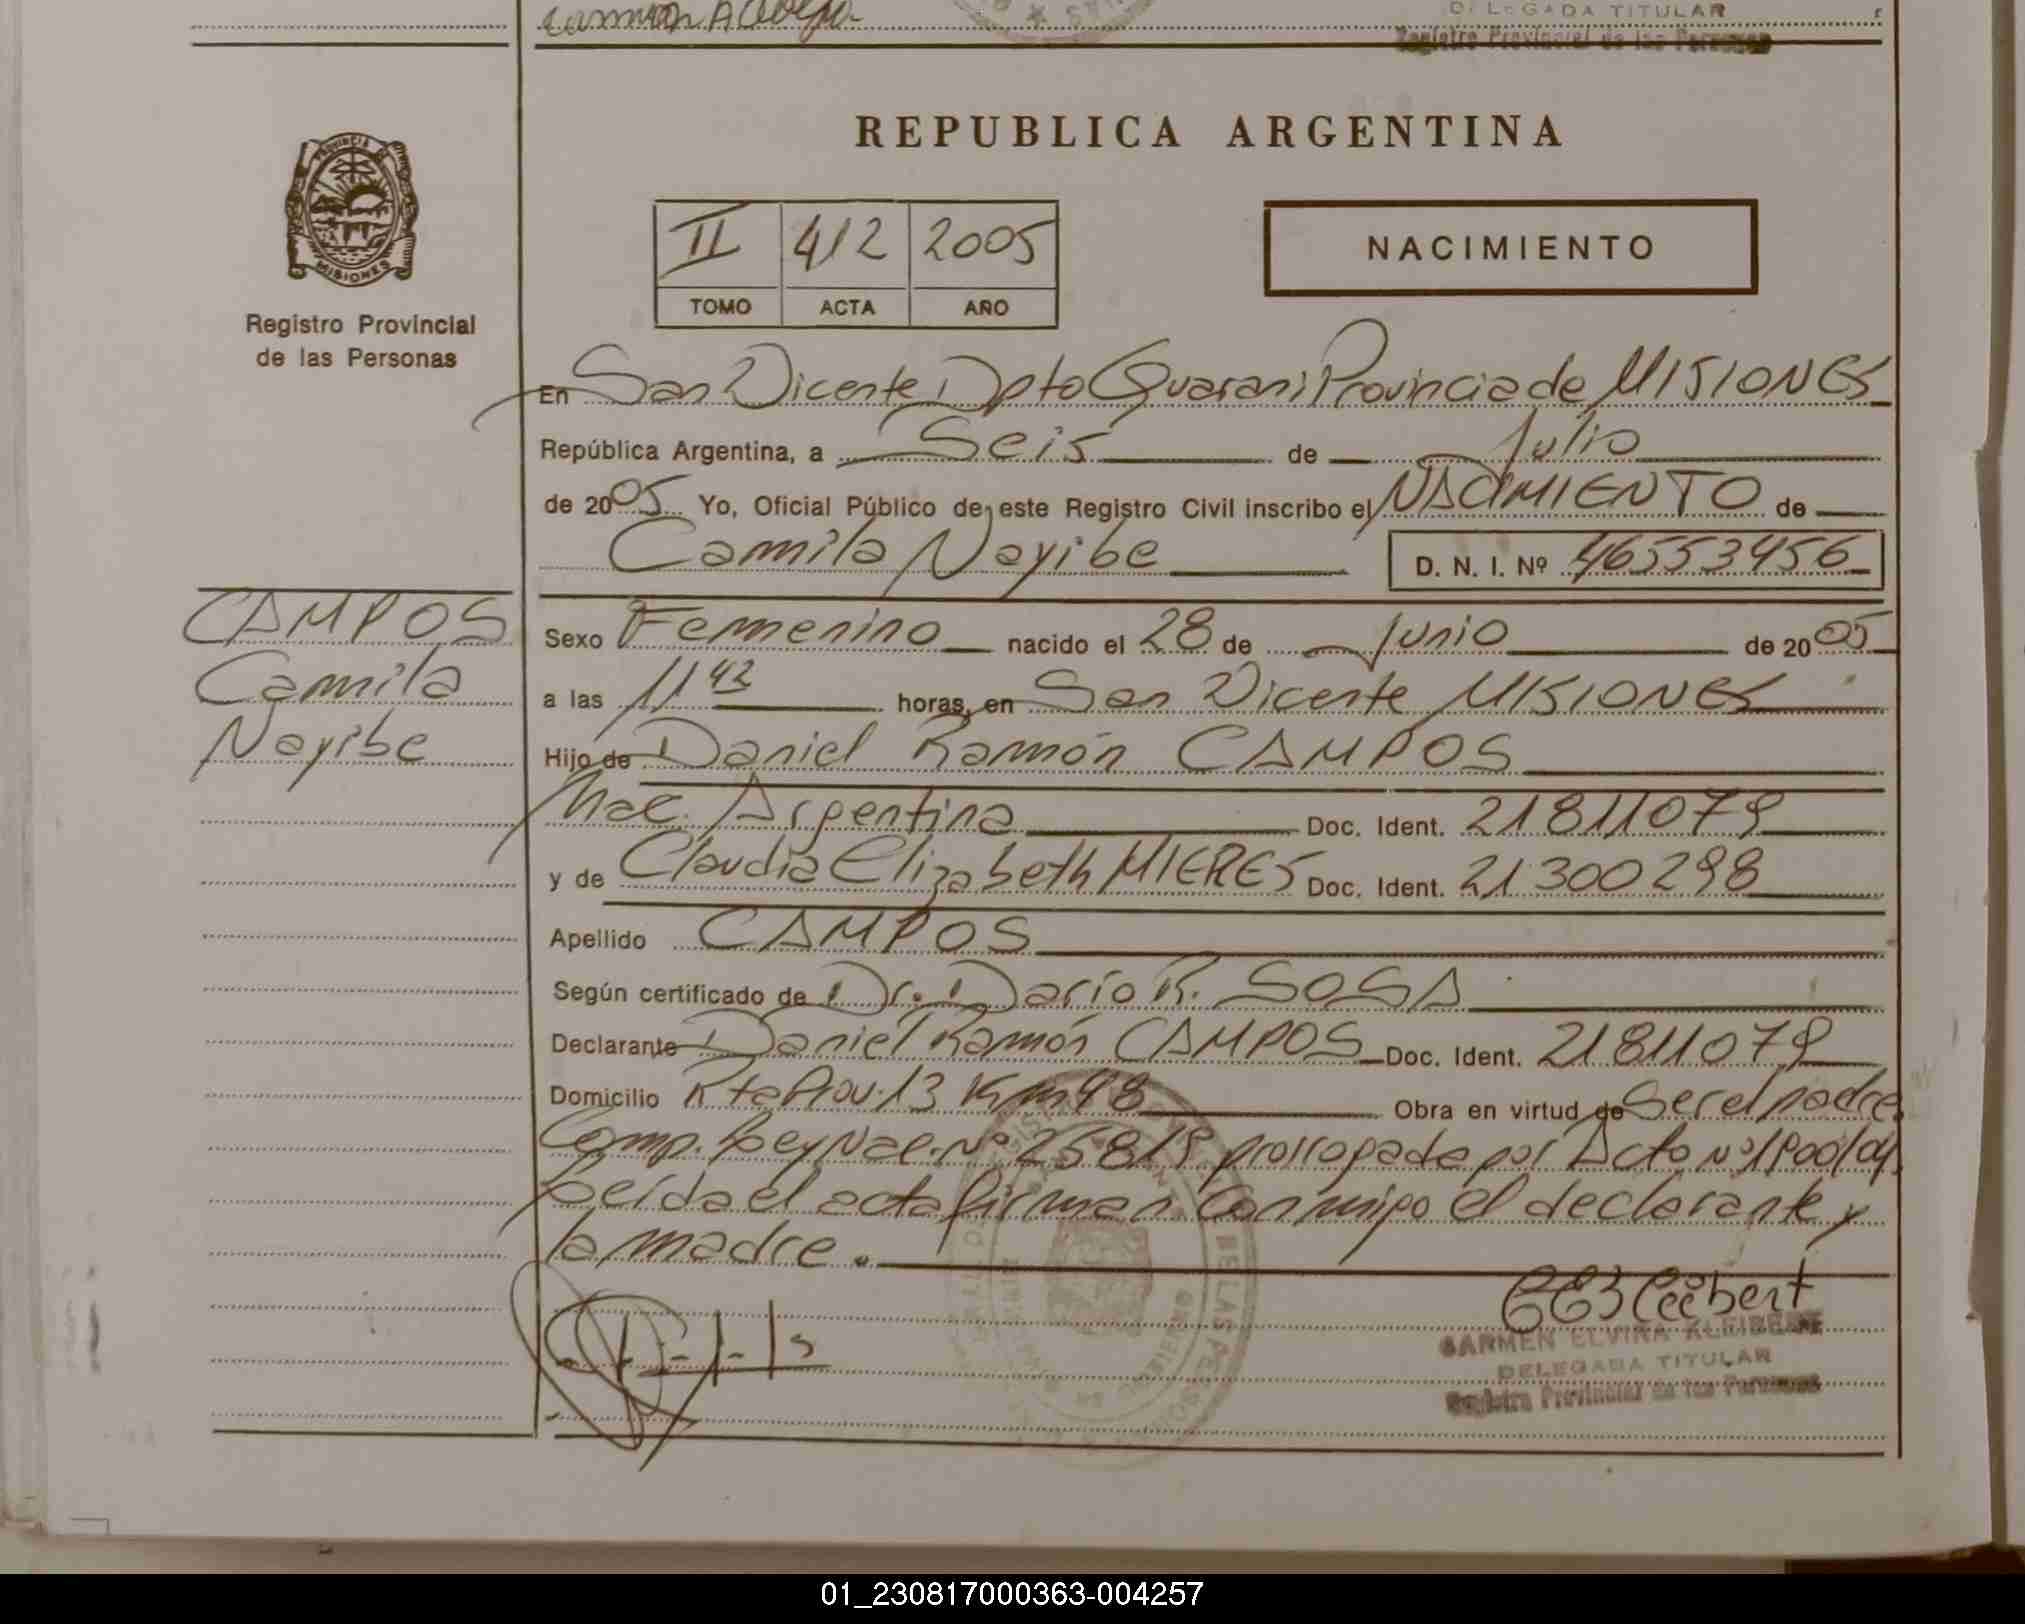 DELEGADA TITULAR
Registro Provincial de las Personas
REPUBLICA ARGENTINA
PROVINCIA DE
MISIONES
Registro Provincial
de las Personas
II 412 2005
TOMO ACTA AÑO
NACIMIENTO
En San Vicente Dpto Guarani Provincia de MISIONES
República Argentina, a Seis de Julio
de 2005 Yo, Oficial Público de este Registro Civil inscribo el NACIMIENTO de
Camila Nayibe D. N. I. Nº 46553456
CAMPOS
Camila
Nayibe
Sexo Femenino nacido el 28 de Junio de 2005
a las 11 43 horas, en San Vicente MISIONES
Hijo de Daniel Ramón CAMPOS
Nac. Argentina Doc. Ident. 21811079
y de Claudia Elizabeth MIERES Doc. Ident. 21300298
Apellido CAMPOS
Según certificado de Dr. Darío R. SOSA
Declarante Daniel Ramón CAMPOS Doc. Ident. 21811079
Domicilio Rta Prov. 13 Km 48 Obra en virtud de Ser el padre
Comp. Ley Nac. Nº 25819 prorrogada por Acto Nº 1900/04
Leída el acta firman conmigo el declarante y
la madre.
CARMEN ELVIRA KLEIBERT
DELEGADA TITULAR
Registro Provincial de las Personas
01_230817000363-004257